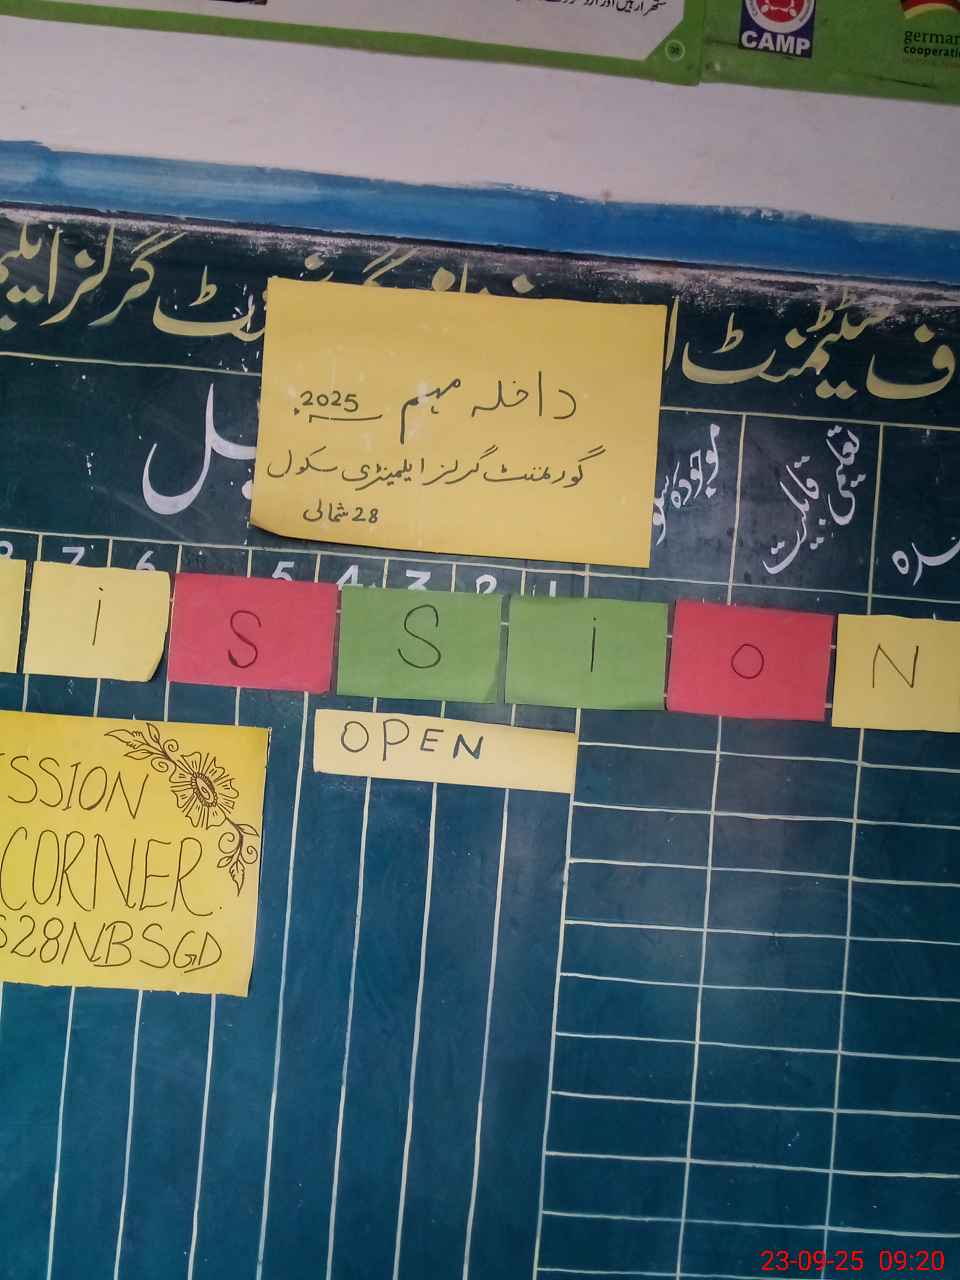 CAMP
german
cooperation
ف سٹیٹمنٹ
گرلز
داخلہ مہم 2025ء
گورنمنٹ گرلز ایلیمینٹری سکول
28 شمالی
تعلیمی قابلیت
موجودہ
7 6 5 4 3 2 1
i S S i O N
OPEN
SSION
CORNER
S28NBSGD
23-09-25 09:20